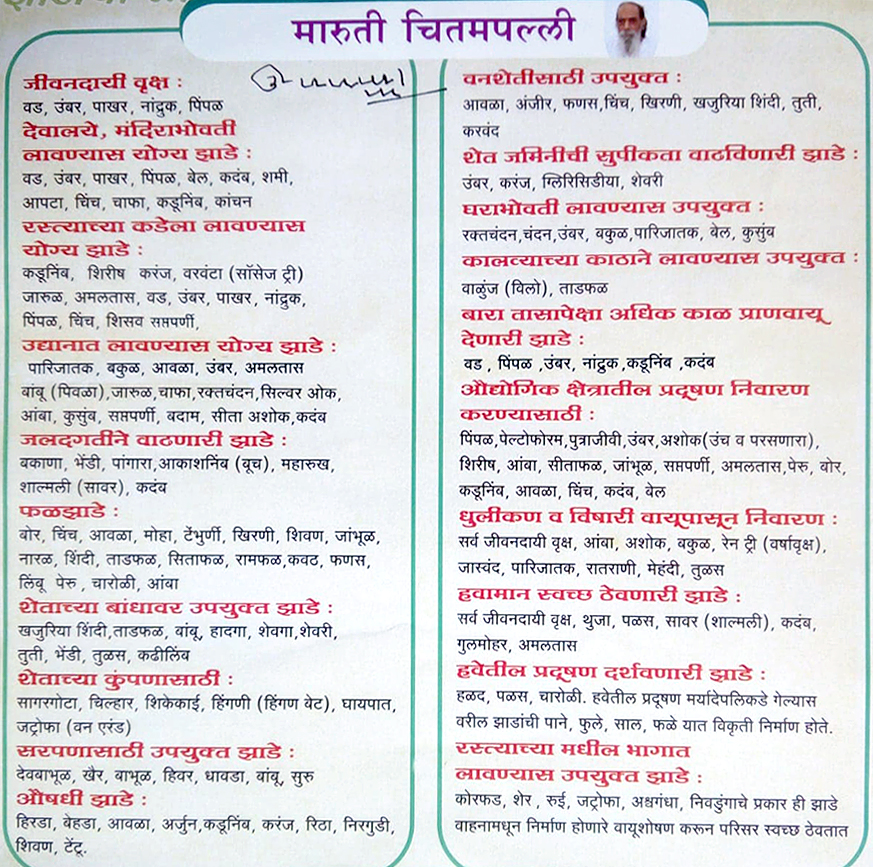 मारुती चितमपल्ली
जीवनदायी वृक्ष :
वड, उंबर, पाखर, नांद्रुक, पिंपळ
देवालये, मंदिराभोवती
लावण्यास योग्य झाडे :
वड, उंबर, पाखर, पिंपळ, बेल, कदंब, शमी,
आपटा, चिंच, चाफा, कडूनिंब, कांचन
रस्त्याच्या कडेला लावण्यास
योग्य झाडे :
कडूनिंब, शिरीष करंज, वरवंटा (सॉसेज ट्री)
जारुळ, अमलतास, वड, उंबर, पाखर, नांद्रुक,
पिंपळ, चिंच, शिसव सप्तपर्णी,
उद्यानात लावण्यास योग्य झाडे :
पारिजातक, बकुळ, आवळा, उंबर, अमलतास
बांबू (पिवळा),जारुळ,चाफा,रक्तचंदन,सिल्वर ओक,
आंबा, कुसुंब, सप्तपर्णी, बदाम, सीता अशोक,कदंब
जलदगतीने वाढणारी झाडे :
बकाणा, भेंडी, पांगारा,आकाशनिंब (बूच), महारुख,
शाल्मली (सावर), कदंब
फळझाडे :
बोर, चिंच, आवळा, मोहा, टेंभुर्णी, खिरणी, शिवण, जांभूळ,
नारळ, शिंदी, ताडफळ, सिताफळ, रामफळ,कवठ, फणस,
लिंबू पेरु , चारोळी, आंबा
शेताच्या बांधावर उपयुक्त झाडे :
खजुरिया शिंदी,ताडफळ, बांबू, हादगा, शेवगा,शेवरी,
तुती, भेंडी, तुळस, कढीलिंब
शेताच्या कुंपणासाठी :
सागरगोटा, चिल्हार, शिकेकाई, हिंगणी (हिंगण बेट), घायपात,
जट्रोफा (वन एरंड)
सरपणासाठी उपयुक्त झाडे :
देवबाभूळ, खैर, बाभूळ, हिवर, धावडा, बांबू, सुरु
औषधी झाडे :
हिरडा, बेहडा, आवळा, अर्जुन,कडूनिंब, करंज, रिठा, निरगुडी,
शिवण, टेंटू.
वनशेतीसाठी उपयुक्त :
आवळा, अंजीर, फणस,चिंच, खिरणी, खजुरिया शिंदी, तुती,
करवंद
शेत जमिनीची सुपीकता वाढविणारी झाडे :
उंबर, करंज, ग्लिरिसिडीया, शेवरी
घराभोवती लावण्यास उपयुक्त :
रक्तचंदन,चंदन,उंबर, बकुळ,पारिजातक, बेल, कुसुंब
कालव्याच्या काठाने लावण्यास उपयुक्त :
वाळुंज (विलो), ताडफळ
बारा तासापेक्षा अधिक काळ प्राणवायू
देणारी झाडे :
वड , पिंपळ ,उंबर, नांद्रुक,कडूनिंब ,कदंब
औद्योगिक क्षेत्रातील प्रदूषण निवारण
करण्यासाठी :
पिंपळ,पेल्टोफोरम,पुत्राजीवी,उंबर,अशोक(उंच व परसणारा),
शिरीष, आंबा, सीताफळ, जांभूळ, सप्तपर्णी, अमलतास,पेरु, बोर,
कडूनिंब, आवळा, चिंच, कदंब, बेल
धुलीकण व विषारी वायूपासून निवारण :
सर्व जीवनदायी वृक्ष, आंबा, अशोक, बकुळ, रेन ट्री (वर्षावृक्ष),
जास्वंद, पारिजातक, रातराणी, मेहंदी, तुळस
हवामान स्वच्छ ठेवणारी झाडे :
सर्व जीवनदायी वृक्ष, थुजा, पळस, सावर (शाल्मली), कदंब,
गुलमोहर, अमलतास
हवेतील प्रदूषण दर्शवणारी झाडे :
हळद, पळस, चारोळी. हवेतील प्रदूषण मर्यादेपलिकडे गेल्यास
वरील झाडांची पाने, फुले, साल, फळे यात विकृती निर्माण होते.
रस्त्याच्या मधील भागात
लावण्यास उपयुक्त झाडे :
कोरफड, शेर , रुई, जट्रोफा, अश्वगंधा, निवडुंगाचे प्रकार ही झाडे
वाहनामधून निर्माण होणारे वायूशोषण करून परिसर स्वच्छ ठेवतात